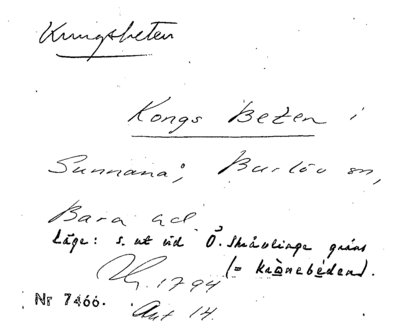 Kungsbeten
Kongs Beten i
Sunnanå, Burlöv sn,
Bara hd.
Läge: s. ut vid Ö. Skrävlinge gräns
(= krånebéden).
1794
Nr 7466.
Akt 14.